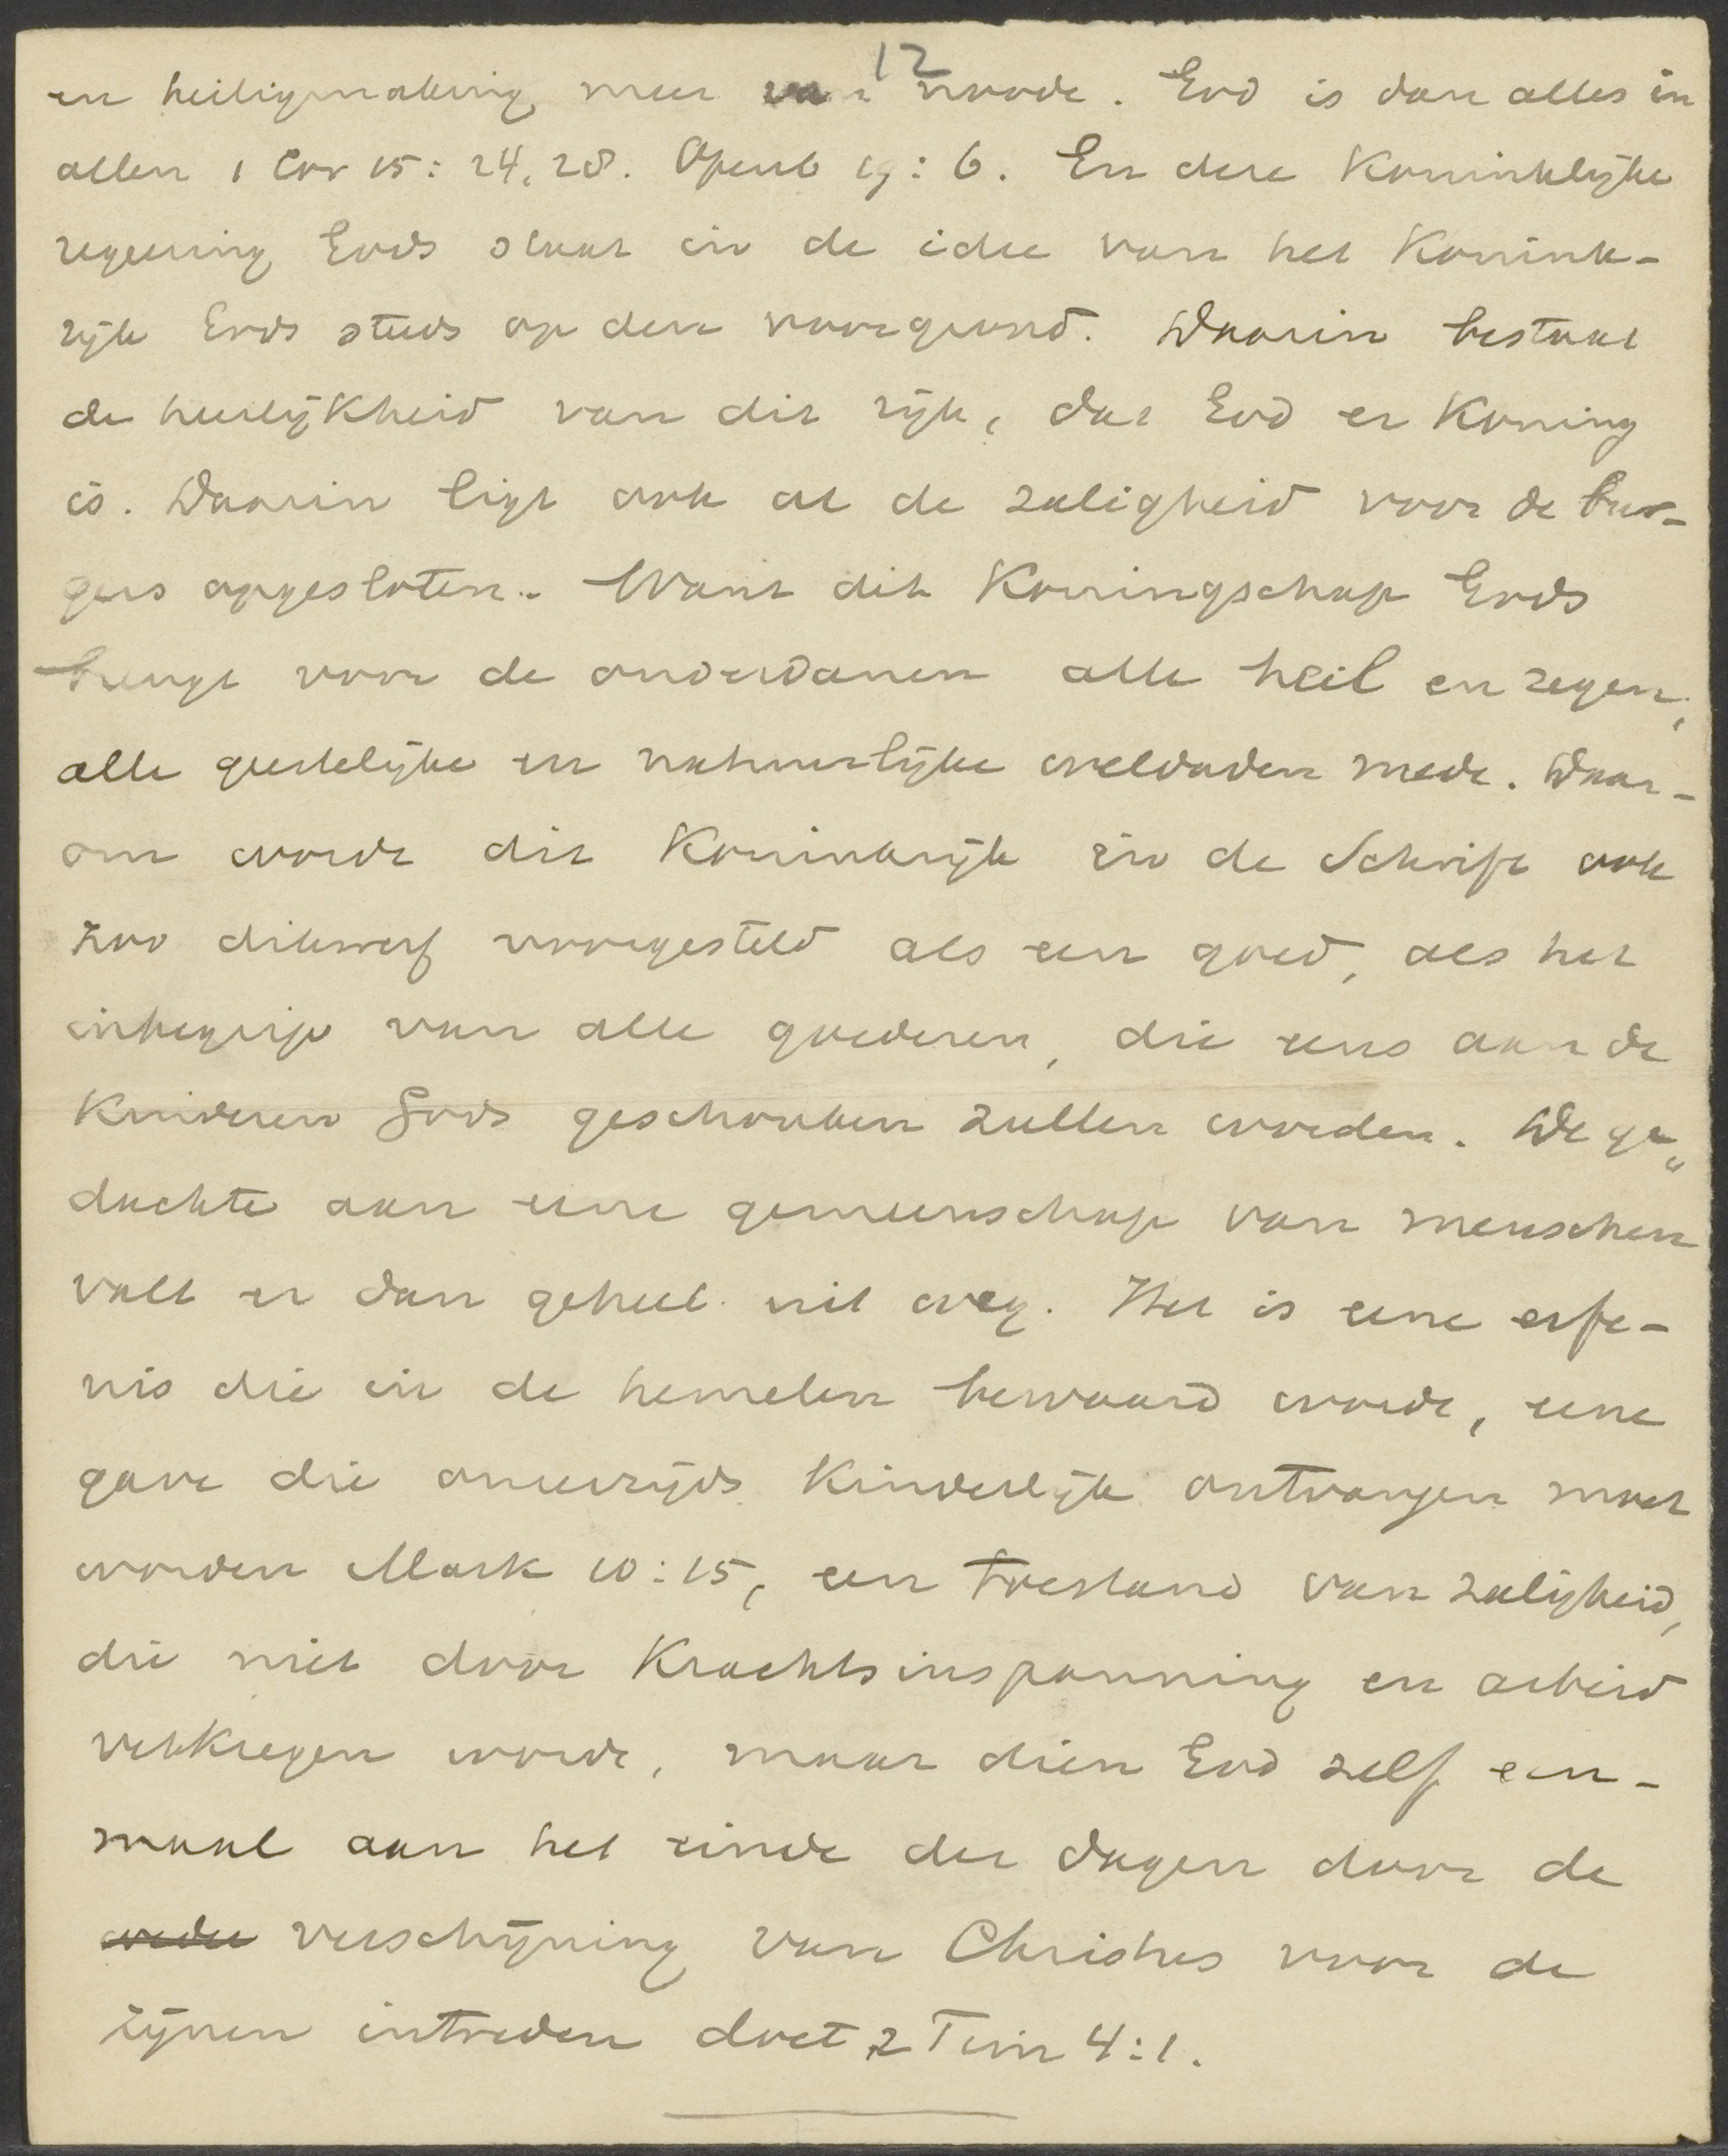 12
en heiligmaking meer van noode. God is dan alles in
allen 1 Cor 15: 24, 28. Openb 19: 6. En deze Koninklijke
regeering Gods staat in de idee van het Konink-
rijk Gods steeds op den voorgrond. Daarin bestaat
de heerlijkheid van dit rijk, dat God er Koning
is. Daarin ligt ook al de zaligheid voor de bur-
gers opgesloten. Want dit Koningschap Gods
brengt voor de onderdanen alle heil en zegen,
alle geestelijke en natuurlijke weldaden mede. Daar-
om wordt dit Koninkrijk in de Schrift ook
zoo dikwerf voorgesteld als een goed, als het
inbegrip van alle goederen, die eens aan de
Kinderen Gods geschonken zullen worden. De ge„
dachte aan eene gemeenschap van menschen
valt er dan geheel uit weg. Het is eene erfe-
nis die in de hemelen bewaard wordt, eene
gave die onzerzijds Kinderlijk ontvangen moet
worden Mark 10:15, een toestand van zaligheid,
die niet door Krachtsinspanning en arbeid
verkregen wordt, maar dien God zelf een-
maal aan het einde der dagen door de
verschijning van Christus voor de
zijnen intreden doet 2 Tim 4:1.